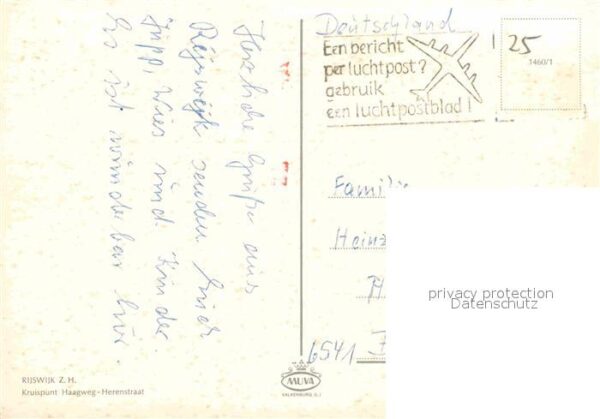 Herzliche Grüße aus
Rijswijk senden Euch
Jupp, Wies und Kinder.
Es ist wunderbar hier.
Deutschland
Een bericht
per luchtpost?
gebruik
een luchtpostblad !
25
1460/1
Familie
Heinz
6541
privacy protection
Datenschutz
RIJSWIJK Z. H.
Kruispunt Haagweg - Herenstraat
MUVA
VALKENBURG (L.)